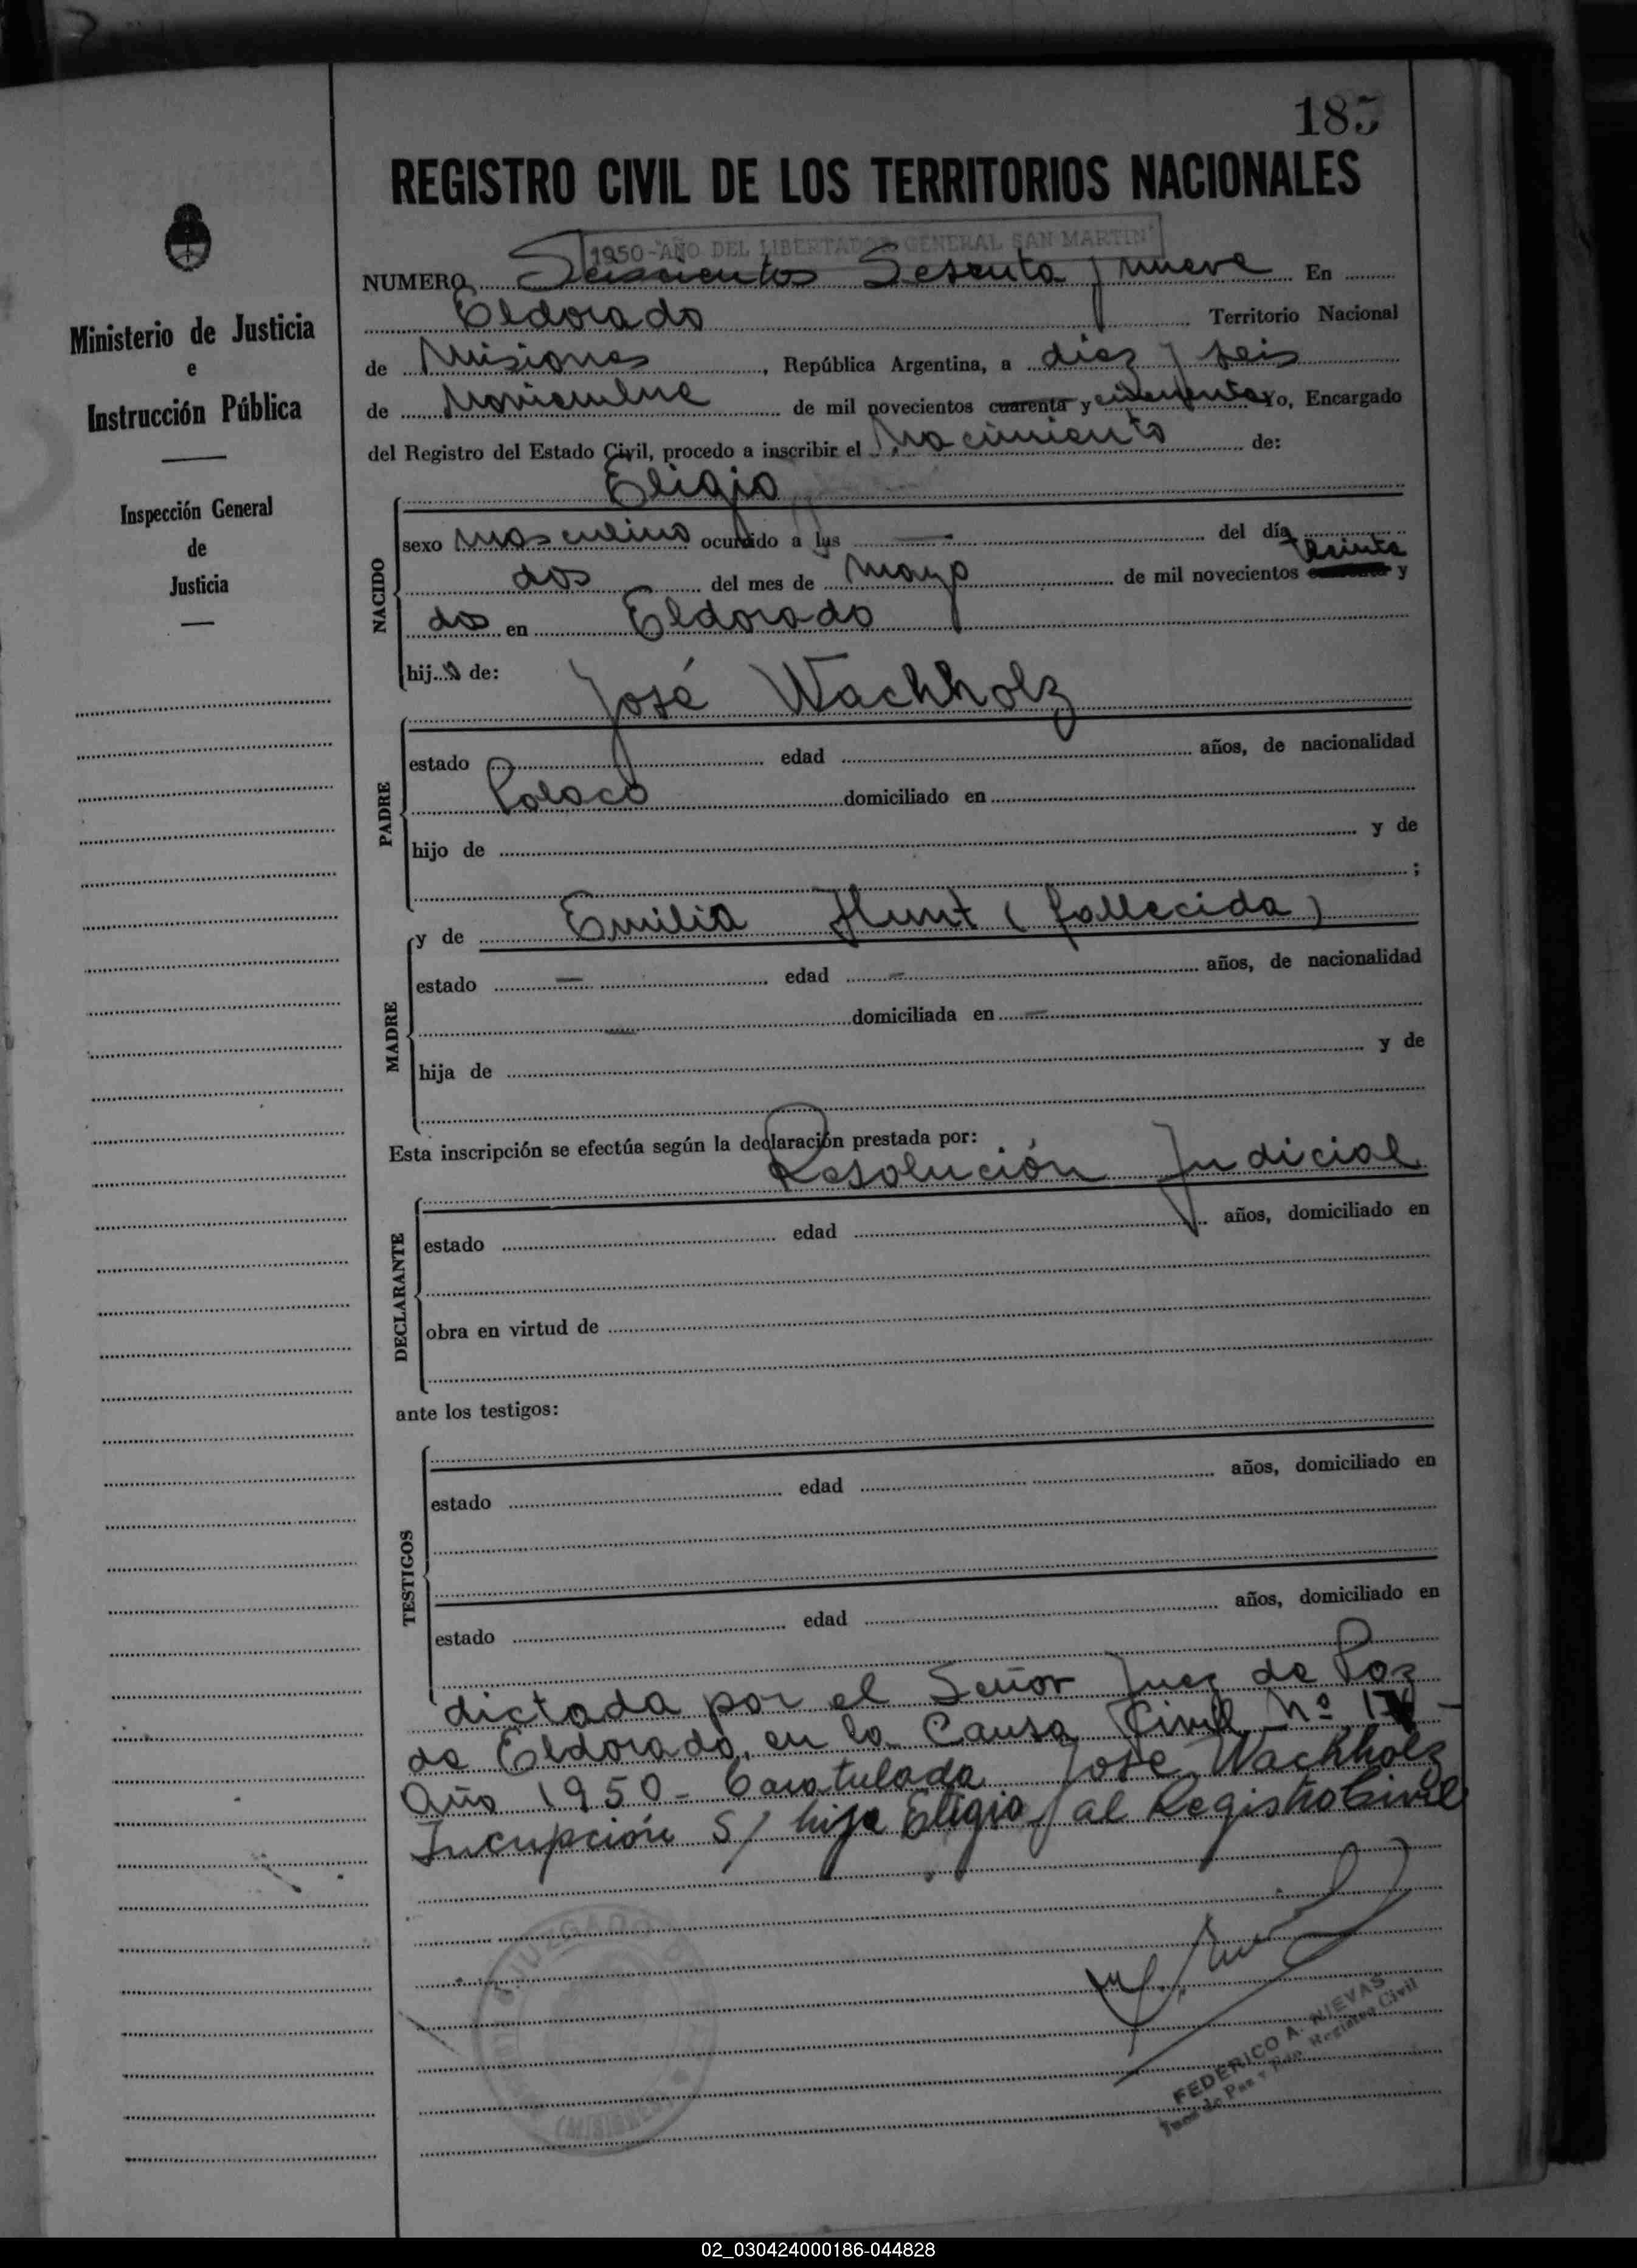 185
REGISTRO CIVIL DE LOS TERRITORIOS NACIONALES
"1950-AÑO DEL LIBERTADOR GENERAL SAN MARTIN"
NUMERO Seiscientos Sesenta y nueve En
Eldorado Territorio Nacional
de Misiones, República Argentina, a diez y seis
de Noviembre de mil novecientos cuarenta y cincuenta Yo, Encargado
del Registro del Estado Civil, procedo a inscribir el Nacimiento de:
Ministerio de Justicia
e
Instrucción Pública
Inspección General
de
Justicia
NACIDO
Eligio
sexo masculino ocurrido a las — del día
dos del mes de Mayo de mil novecientos treinta y
dos en Eldorado
hijo de:
PADRE
José Wachholz
estado edad años, de nacionalidad
Polaco domiciliado en
hijo de y de
;
MADRE
y de Emilia Hunt (fallecida)
estado — edad — años, de nacionalidad
— domiciliada en —
hija de y de
Esta inscripción se efectúa según la declaración prestada por:
Resolución Judicial
DECLARANTE
estado edad años, domiciliado en
obra en virtud de
ante los testigos:
TESTIGOS
estado edad años, domiciliado en
estado edad años, domiciliado en
dictada por el Señor Juez de Paz
de Eldorado, en la Causa Civil Nº
Año 1950- Caratulada José Wachholz
Incupción S/ hijo Eligio al Registro Civil
JUZGADO
(MISIONES)
FEDERICO A. NIEVAS
Juez de Paz y Registro Civil
02_030424000186-044828